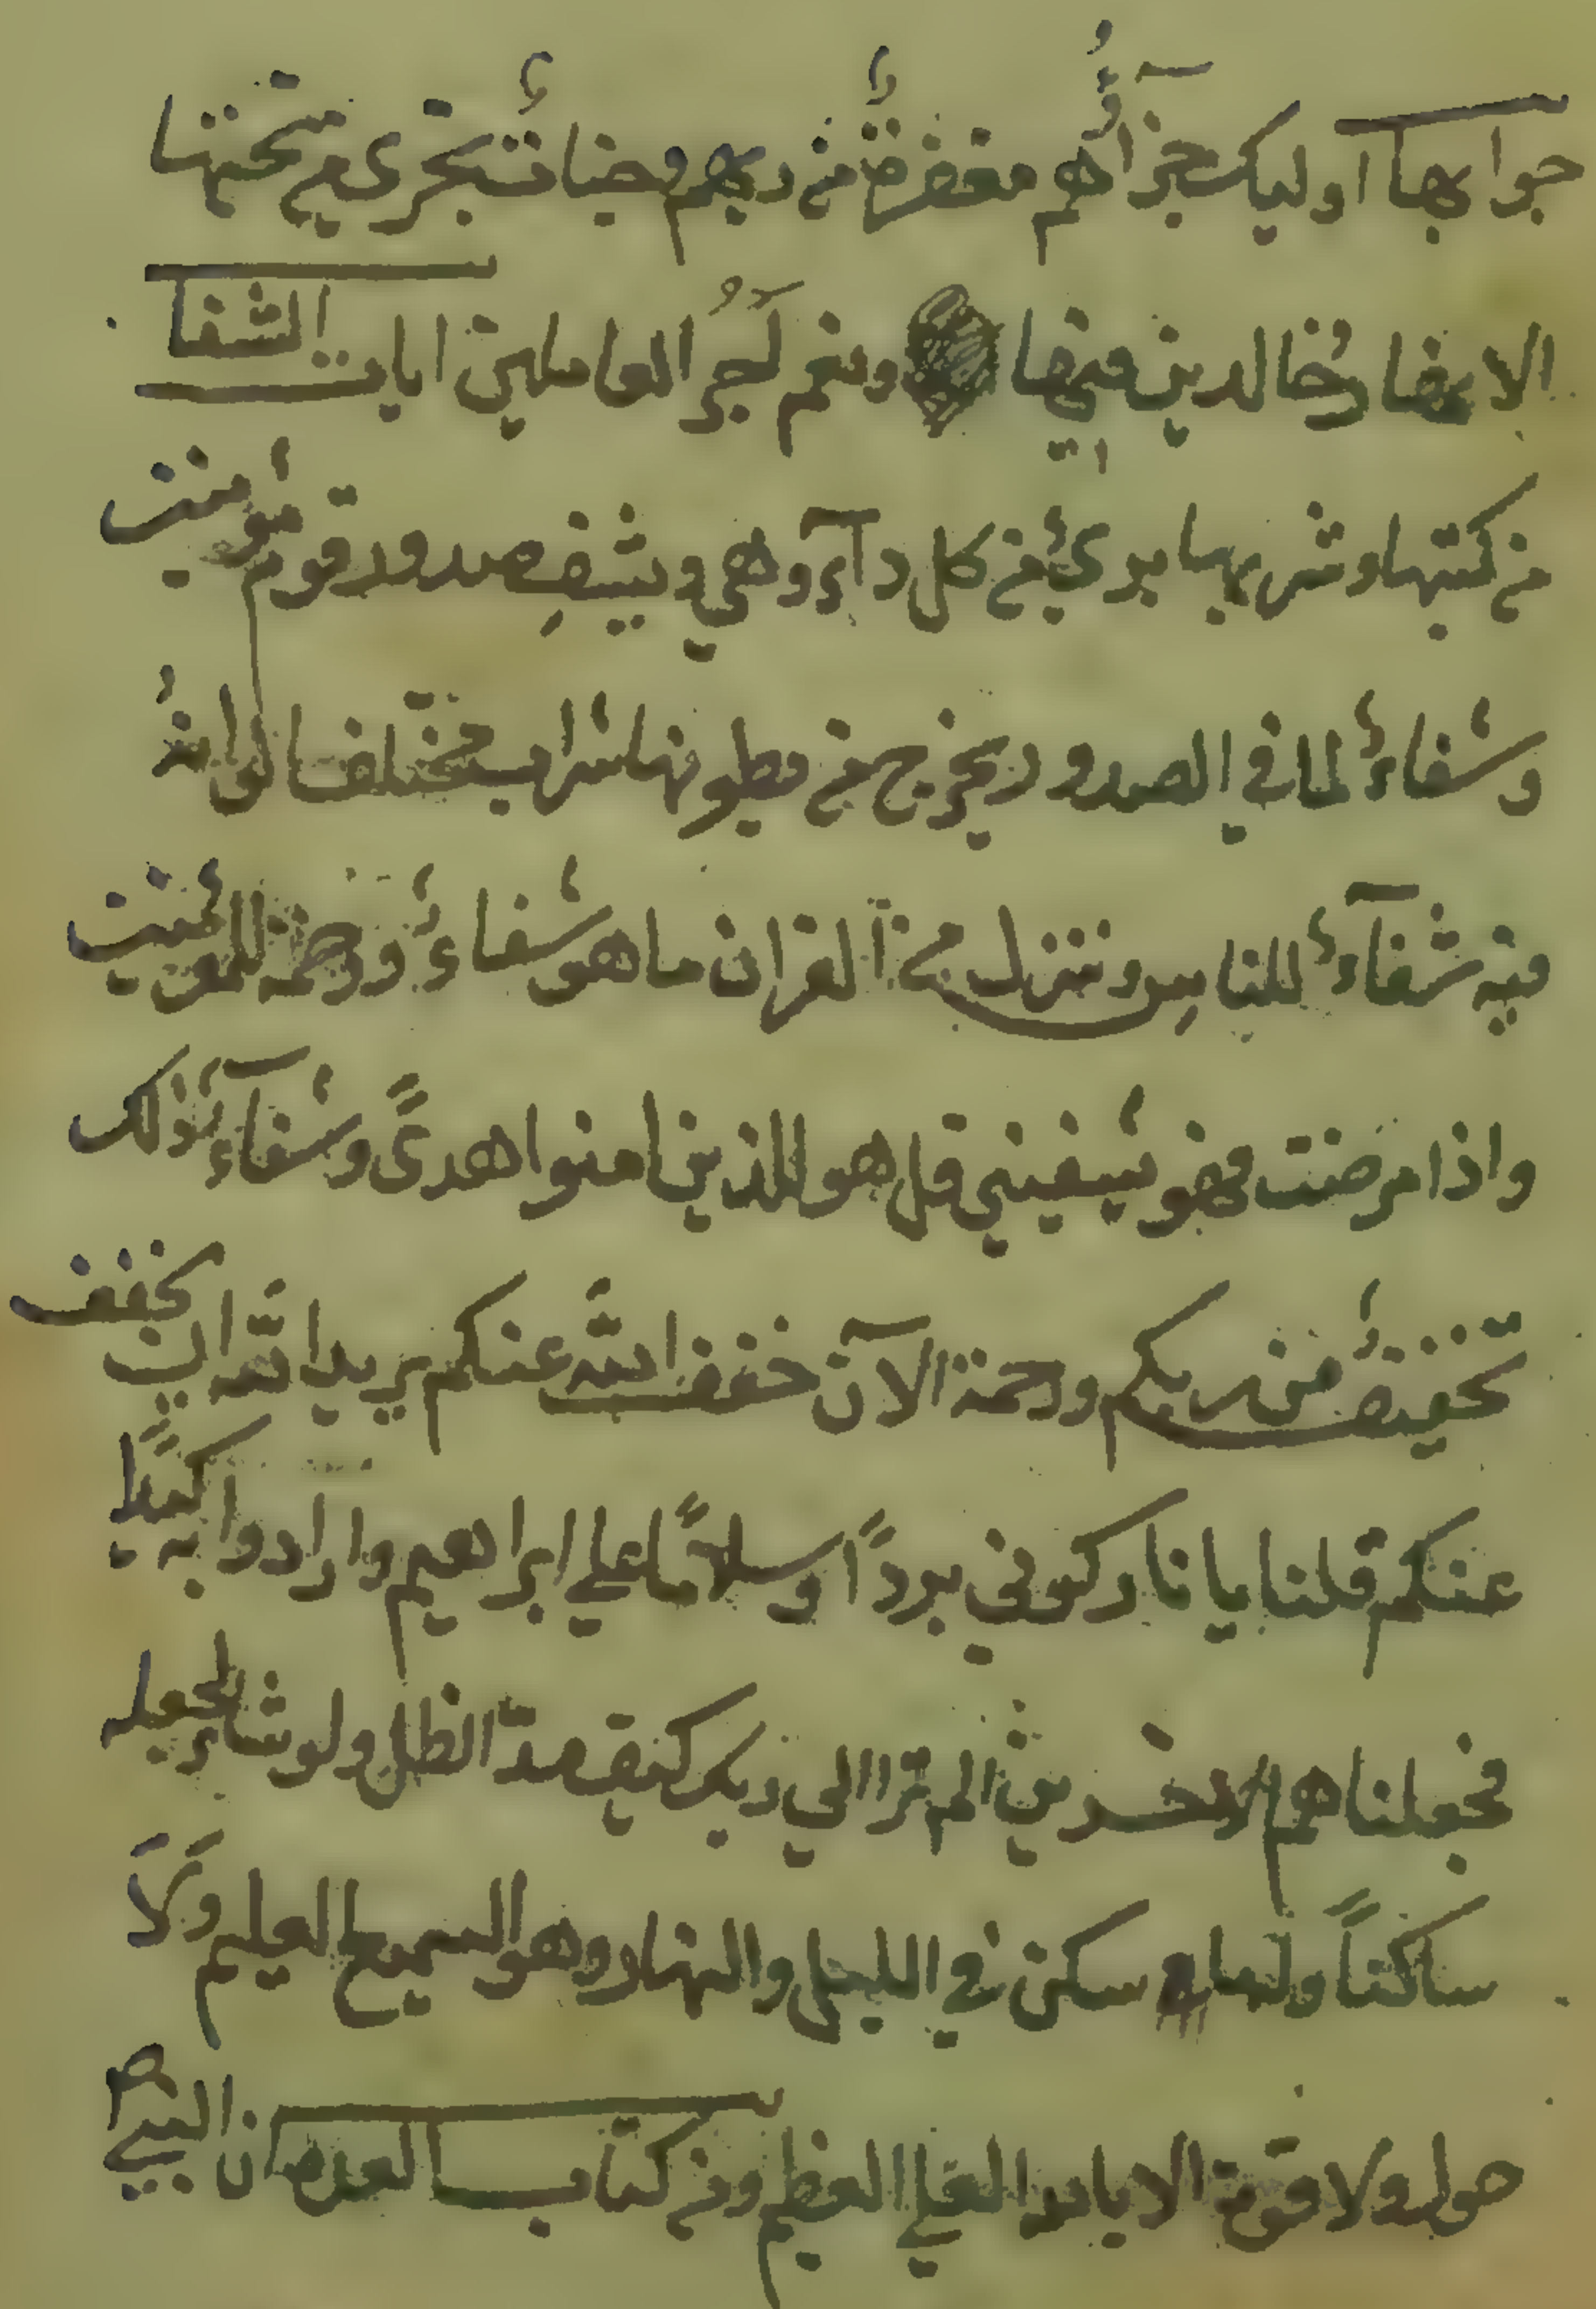 جوابها اوليك جزآؤُهم مغفرةٌ من ربهم وجنات تجرى من تحتها
الانهار خالدين فيها ونعم اَجرُ العاملين ايات الشفا
من كتبها وشربها برئ من كل دآء وهي ويشفِ صدور قوم مؤمنين
وشفاءٌ لما في الصدور يخرج من بطونها شراب مختلف الوانهُ
فيه شفآءٌ للناسِ وننزل من القران ما هو شفاءٌ ورحمة للمؤمنين
واذا مرضت فهو يشفيني قل هو للذين امنوا هدىً وشفآءٌ ذلك
تخفيفٌ من ربكم ورحمة الآن خفف الله عنكم يريد الله ان يخفف
عنكم قلنا يا نار كوني برداً وسلامًا علي ابراهيم وارادوا به كيدًا
فجعلناهم الاخسرين الم ترا الي ربك كيف مدّ الظل ولو شاء لجعله
ساكناً وله ما سكن في الليل والنهار وهو السميع العليم ولا
حول ولا قوة الا بالله العلي العظيم ومن كتاب ان النبي